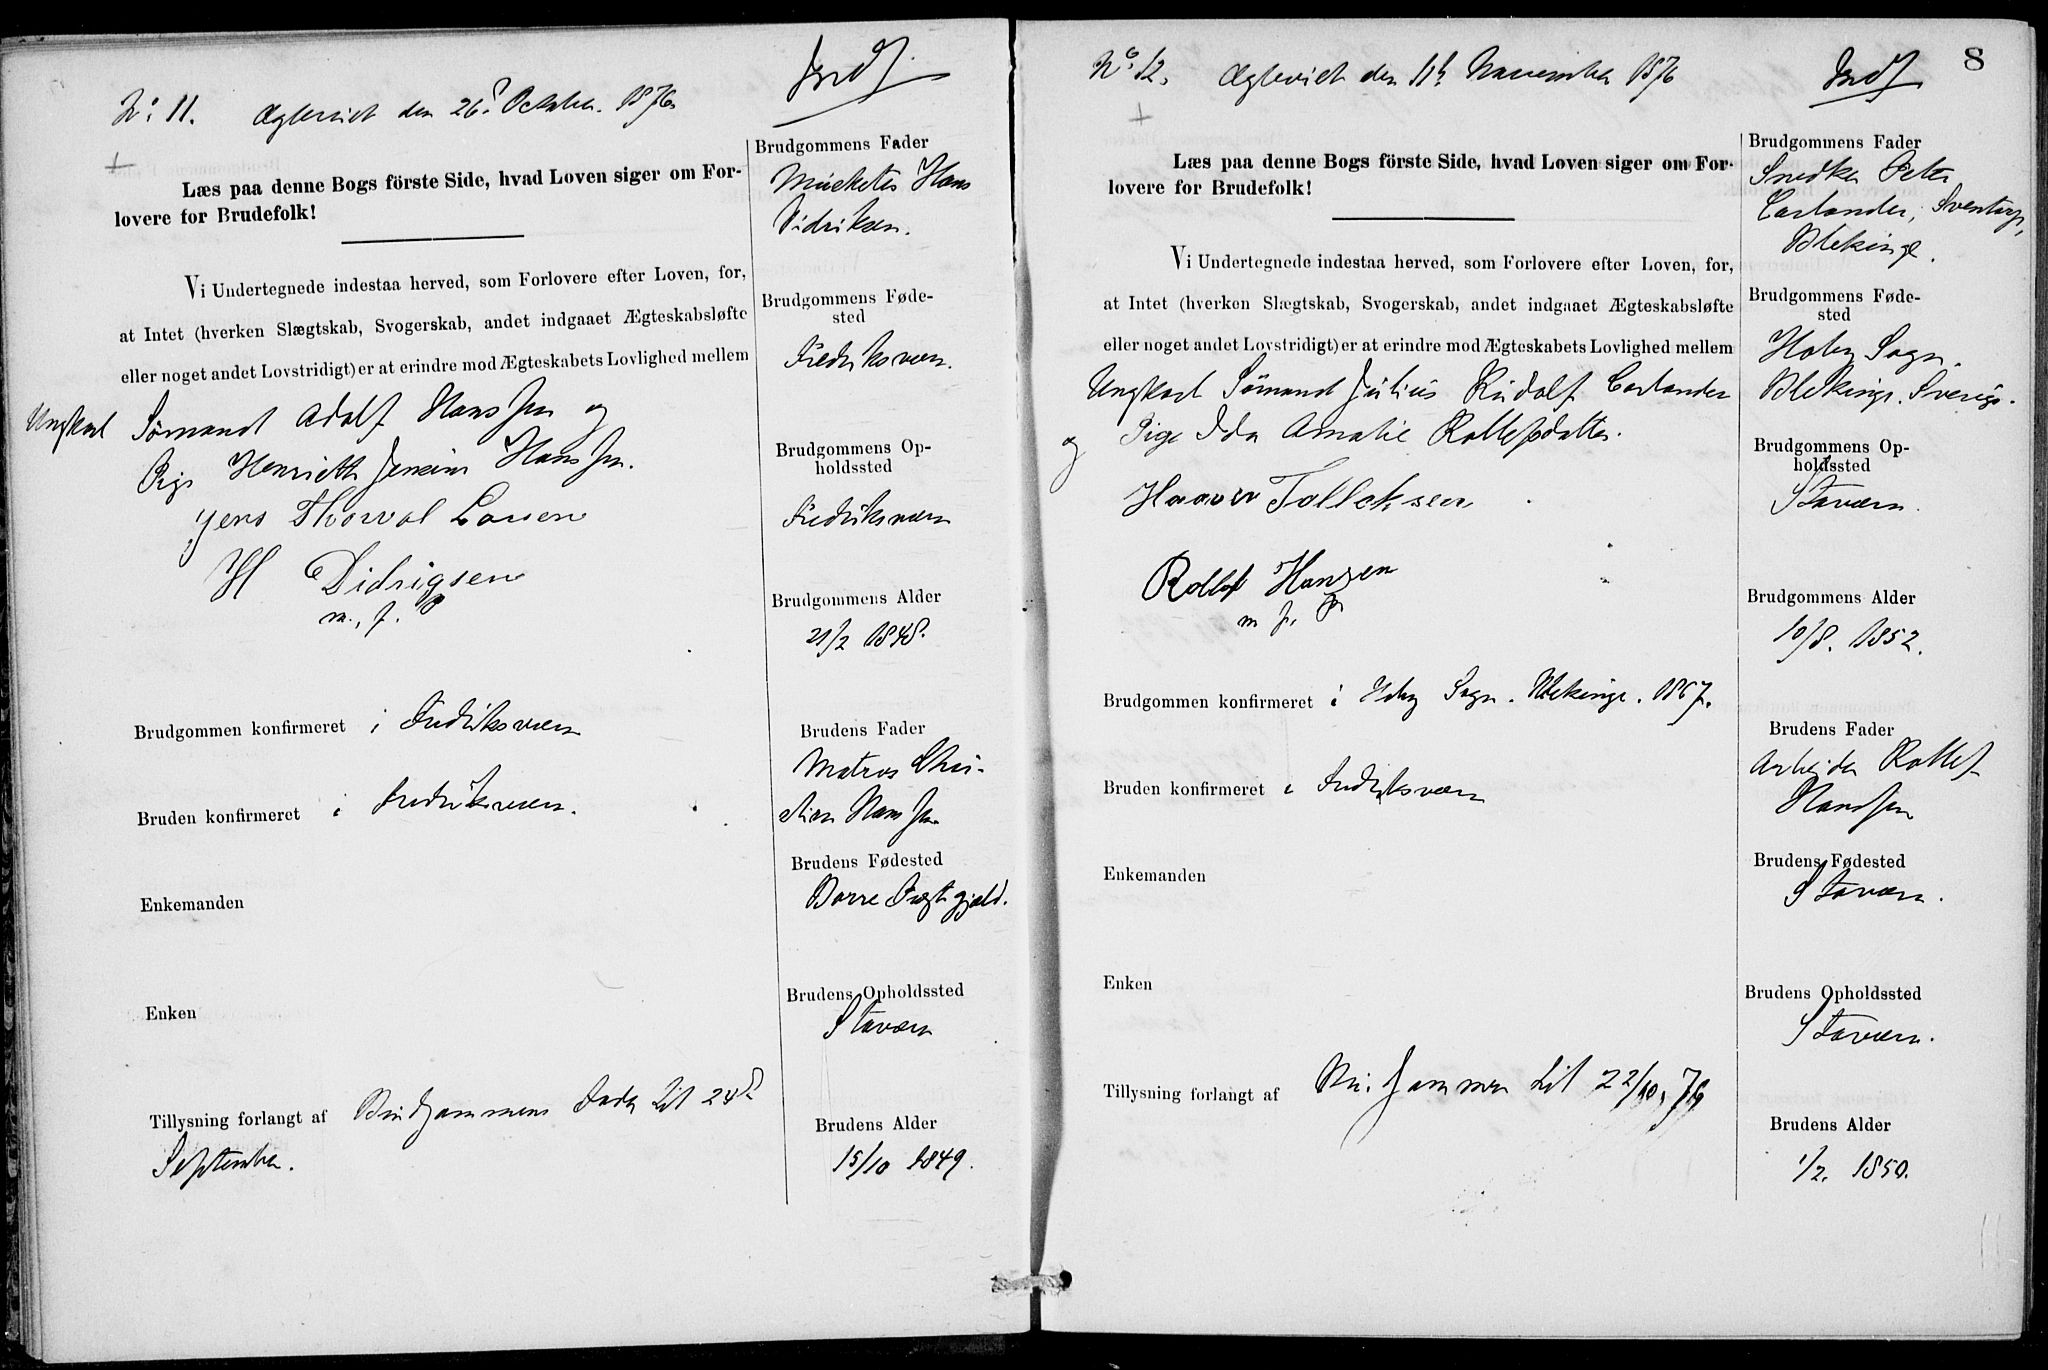 No. 11. Ægteviet den 26d October. 1876
Indf.
Læs paa denne Bogs förste Side, hvad Loven siger om For-
lovere for Brudefolk!
Vi Undertegnede indestaa herved, som Forlovere efter Loven, for,
at Intet (hverken Slægtskab, Svogerskab, andet indgaaet Ægteskabsløfte
eller noget andet Lovstridigt) er at erindre mod Ægteskabets Lovlighed mellem
Ungkarl Sömand Adolf Hanssen og
Pige Henriette Hanssen.
Jens Thorval Larsen
H Didrigsen
m. f. P
Brudgommen konfirmeret i Fredriksværn
Bruden konfirmeret i Fredriksværn.
Enkemanden
Enken
Tillysning forlangt af Brudgommens Fader til 24d
September.
Brudgommens Fader
Hans
Didriksen.
Brudgommens Føde-
sted
Fredriksværn.
Brudgommens Op-
holdssted
Fredriksværn
Brudgommens Alder
21/2 1848.
Brudens Fader
Matros Chri-
stian Hanssen
Brudens Fødested
Borre Præstegjæld.
Brudens Opholdssted
Staværn
Brudens Alder
15/10 1849.
8
No. 12. Ægteviet den 11te November 1876
Indf
Læs paa denne Bogs förste Side, hvad Loven siger om For-
lovere for Brudefolk!
Vi Undertegnede indestaa herved, som Forlovere efter Loven, for,
at Intet (hverken Slægtskab, Svogerskab, andet indgaaet Ægteskabsløfte
eller noget andet Lovstridigt) er at erindre mod Ægteskabets Lovlighed mellem
Ungkarl Sömand Julius Rudolf Carlander
og Pige Ida Amalie Rollefsdatter.
Haaver Tolleksen
Rollef Hansen
m f. P
Brudgommen konfirmeret i Hoby Sogn. Blekinge. 1867.
Bruden konfirmeret i Fredriksværn
Enkemanden
Enken
Tillysning forlangt af Brudgommen til 22/10. 76
Brudgommens Fader
Snedker Peter
Carlander, Sventorp,
Blekinge.
Brudgommens Føde-
sted
Hoby Sogn.
Blekinge. Sverige.
Brudgommens Op-
holdssted
Staværn.
Brudgommens Alder
10/8. 1852.
Brudens Fader
Arbeider Rollef
Handsen
Brudens Fødested
Staværn.
Brudens Opholdssted
Staværn.
Brudens Alder
1/2. 1850.